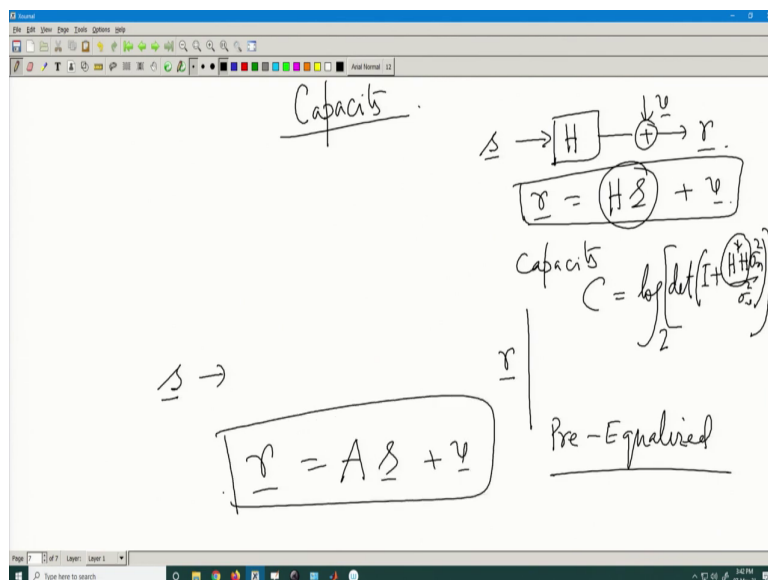 Xournal
File Edit View Page Tools Options Help
Arial Normal 12
Capacity
s → H + v → r
r = H s + v
Capacity
C = log₂ [det (I +
r
s →
r = A s + v
Pre-Equalized
Page 7 of 7 Layer: Layer 1
Type here to search
3:42 PM